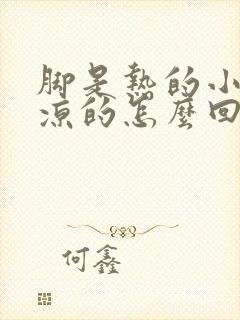 脚是热的小
凉的怎麼回
何鑫